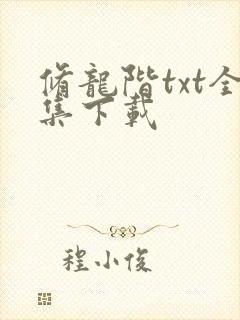 脩龍階txt全
集下載
程小俊